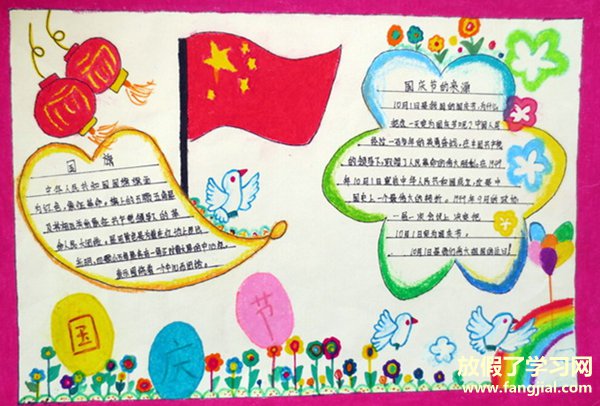 国 旗
中华人民共和国国旗旗面
为红色,象征革命。旗上的五颗五角星
及其相互关系象征共产党领导下的革
命人民大团结。星用黄色是为着在红地上显出
光明,四颗小五角星各有一尖正对着大星的中心点,
表示围绕着一个中心而团结。
国庆节的来源
10月1日是我国的国庆节,为什么
把这一天定为国庆节呢?中国人民
经过一百多年的英勇奋战,在中国共产党
的领导下,取得了人民革命的伟大胜利。在1949
年10月1日宣告中华人民共和国成立,这是中
国历史上一个最伟大的转折。1949年9月的政协
一届一次会议上决定把
10月1日定为国庆节。
10月1日是我们伟大祖国的生日!
国
庆
节
放假了学习网
www.fangjial.com